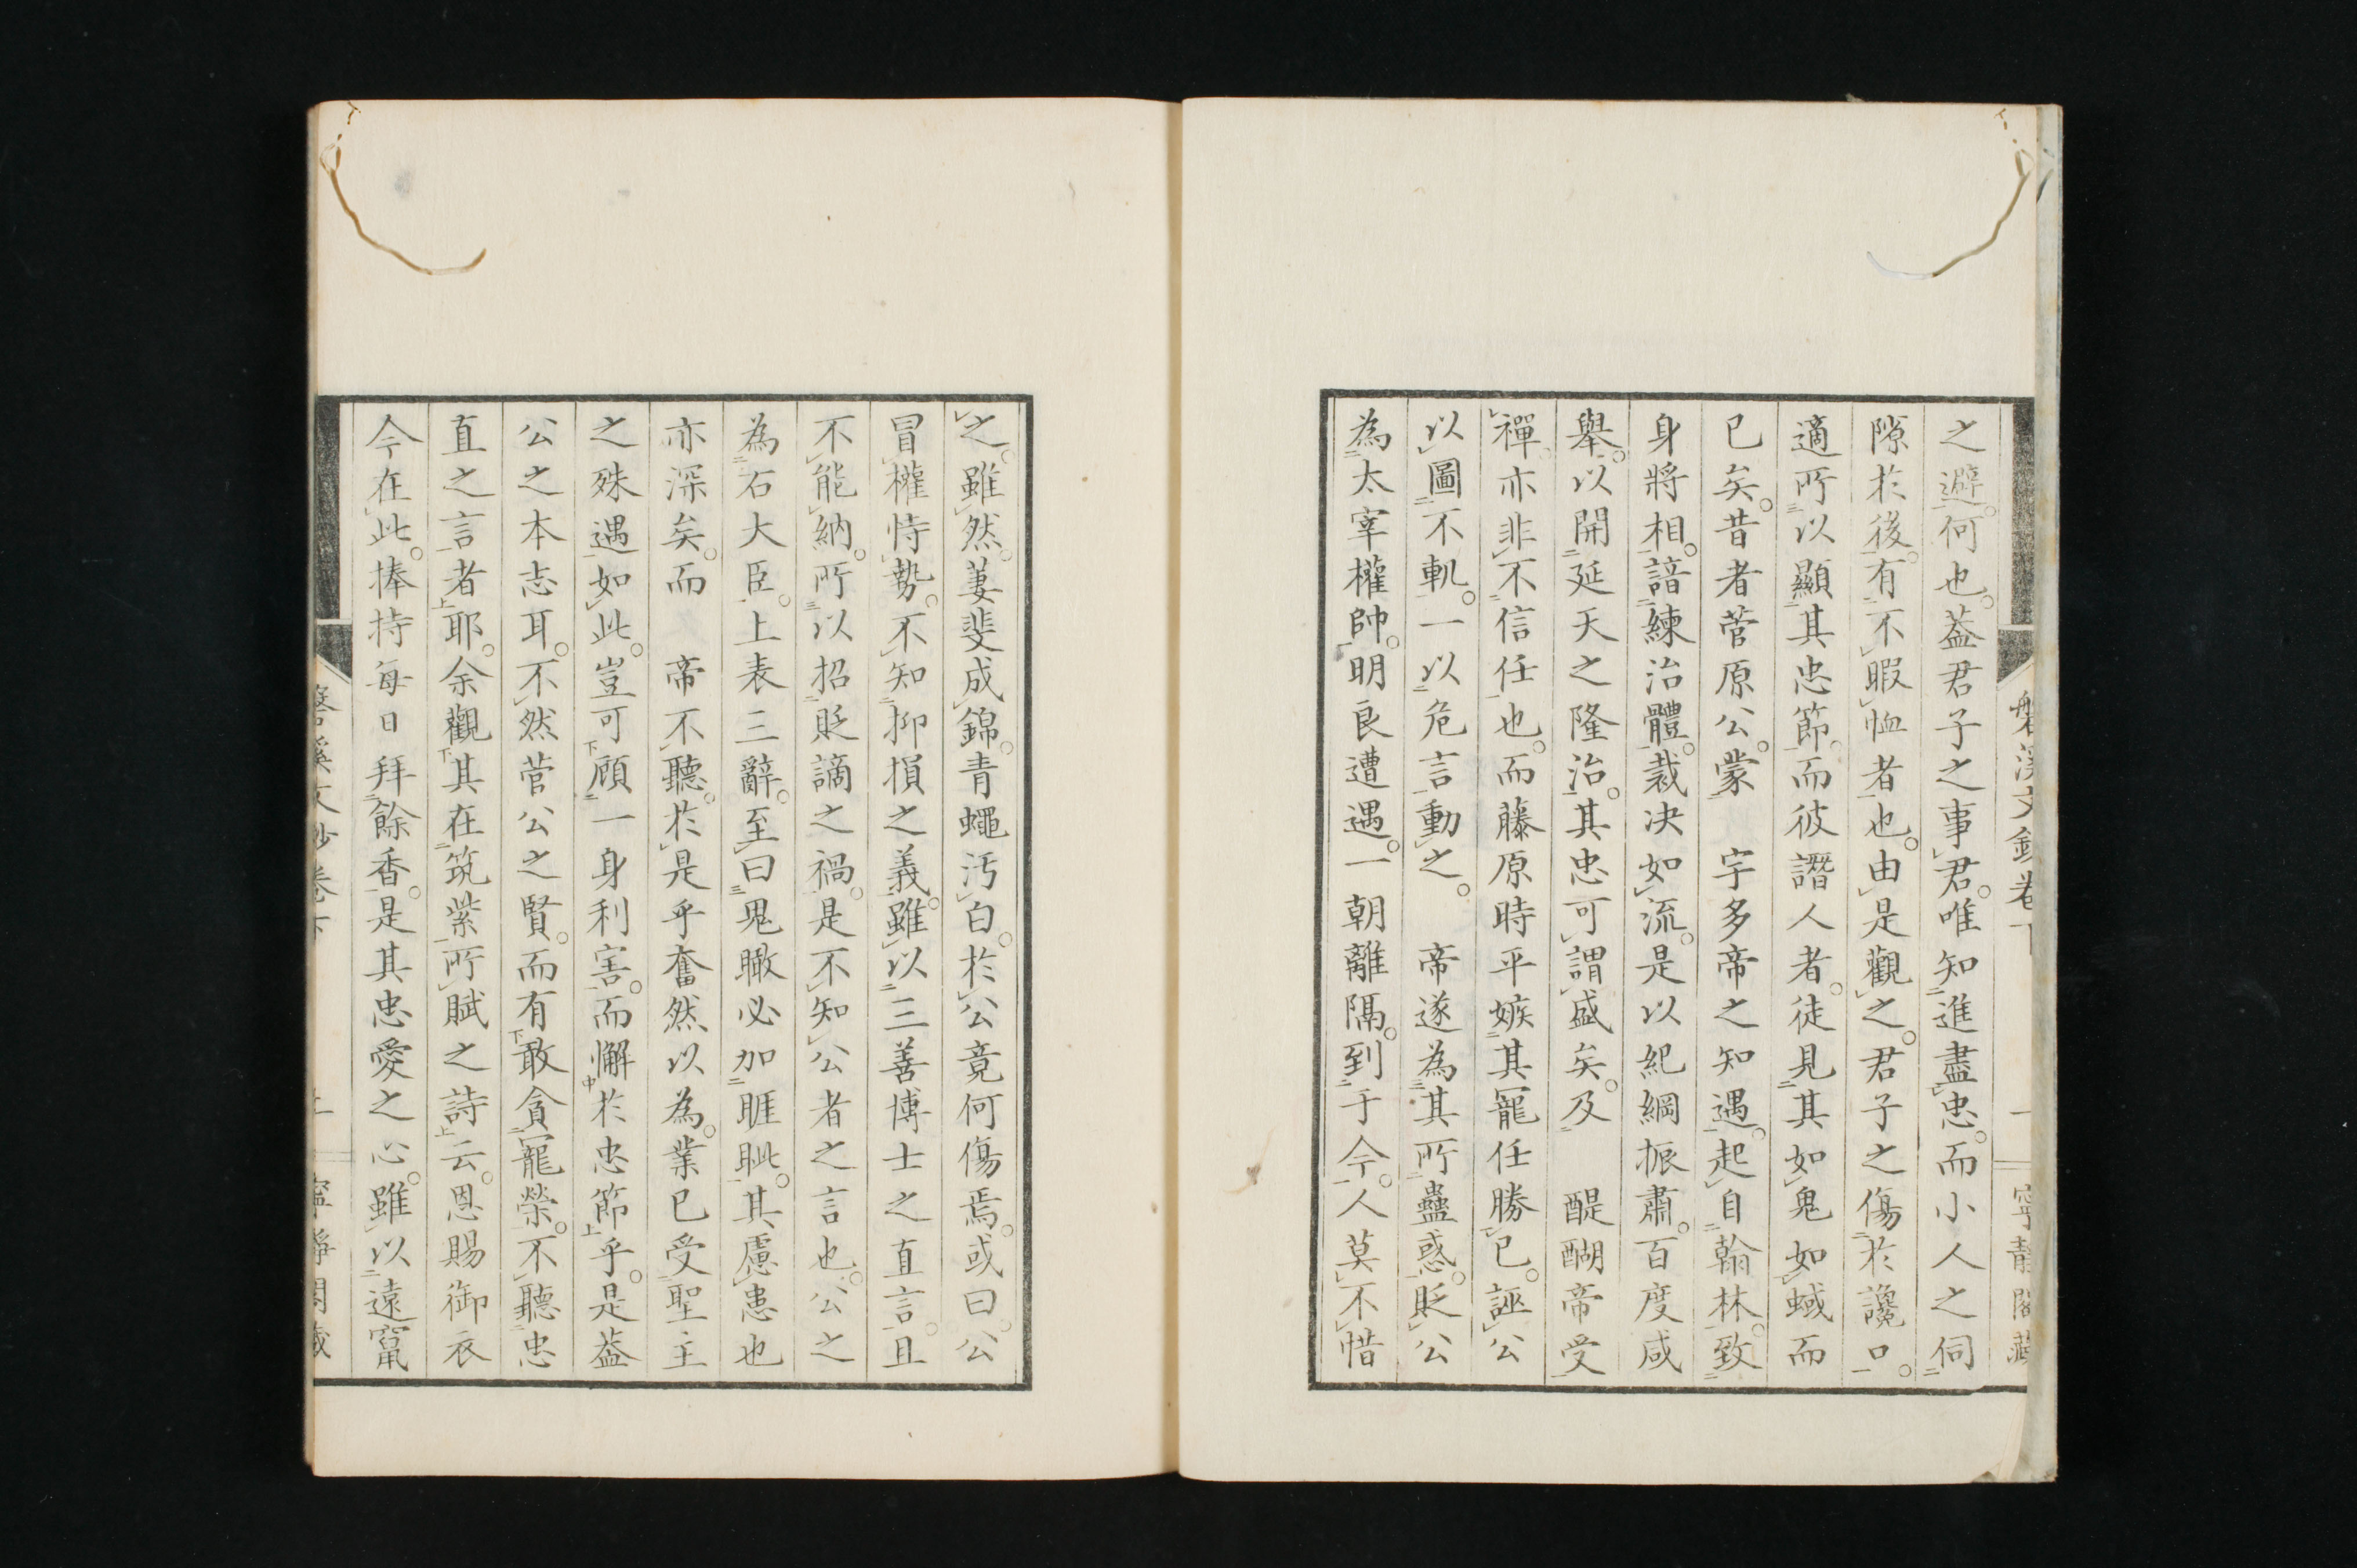 之避。何也。葢君子之事君。唯知進盡忠。而小人之伺
隙於後。有不暇恤者也。由是觀之。君子之傷於讒口。
適所以顯其忠節。而彼譖人者。徒見其如鬼如蜮而
已矣。昔者菅原公。蒙　宇多帝之知遇。起自翰林。致
身將相。諳練治體。裁決如流。是以紀綱振肅。百度咸
舉。以開延天之隆治。其忠可謂盛矣。及　醍醐帝受
禪。亦非不信任也。而藤原時平嫉其寵任勝已。誣公
以圖不軌。一以危言動之。　帝遂為其所蠱惑。貶公
為太宰權帥。明良遭遇。一朝離隔。到于今。人莫不惜
之。雖然。萋斐成錦。青蠅汚白。於公竟何傷焉。或曰。公
冒權恃勢。不知抑損之義。雖以三善博士之直言。且
不能納。所以招貶謫之禍。是不知公者之言也。公之
為右大臣。上表三辭。至曰鬼瞰必加睚眦。其慮患也
亦深矣。而　帝不聽。於是乎奮然以為。業已受聖主
之殊遇如此。豈可顧一身利害。而懈於忠節乎。是葢
公之本志耳。不然菅公之賢。而有敢貪寵榮。不聽忠
直之言者耶。余觀其在筑紫所賦之詩云。恩賜御衣
今在此。捧持每日拜餘香。是其忠愛之心。雖以遠竄